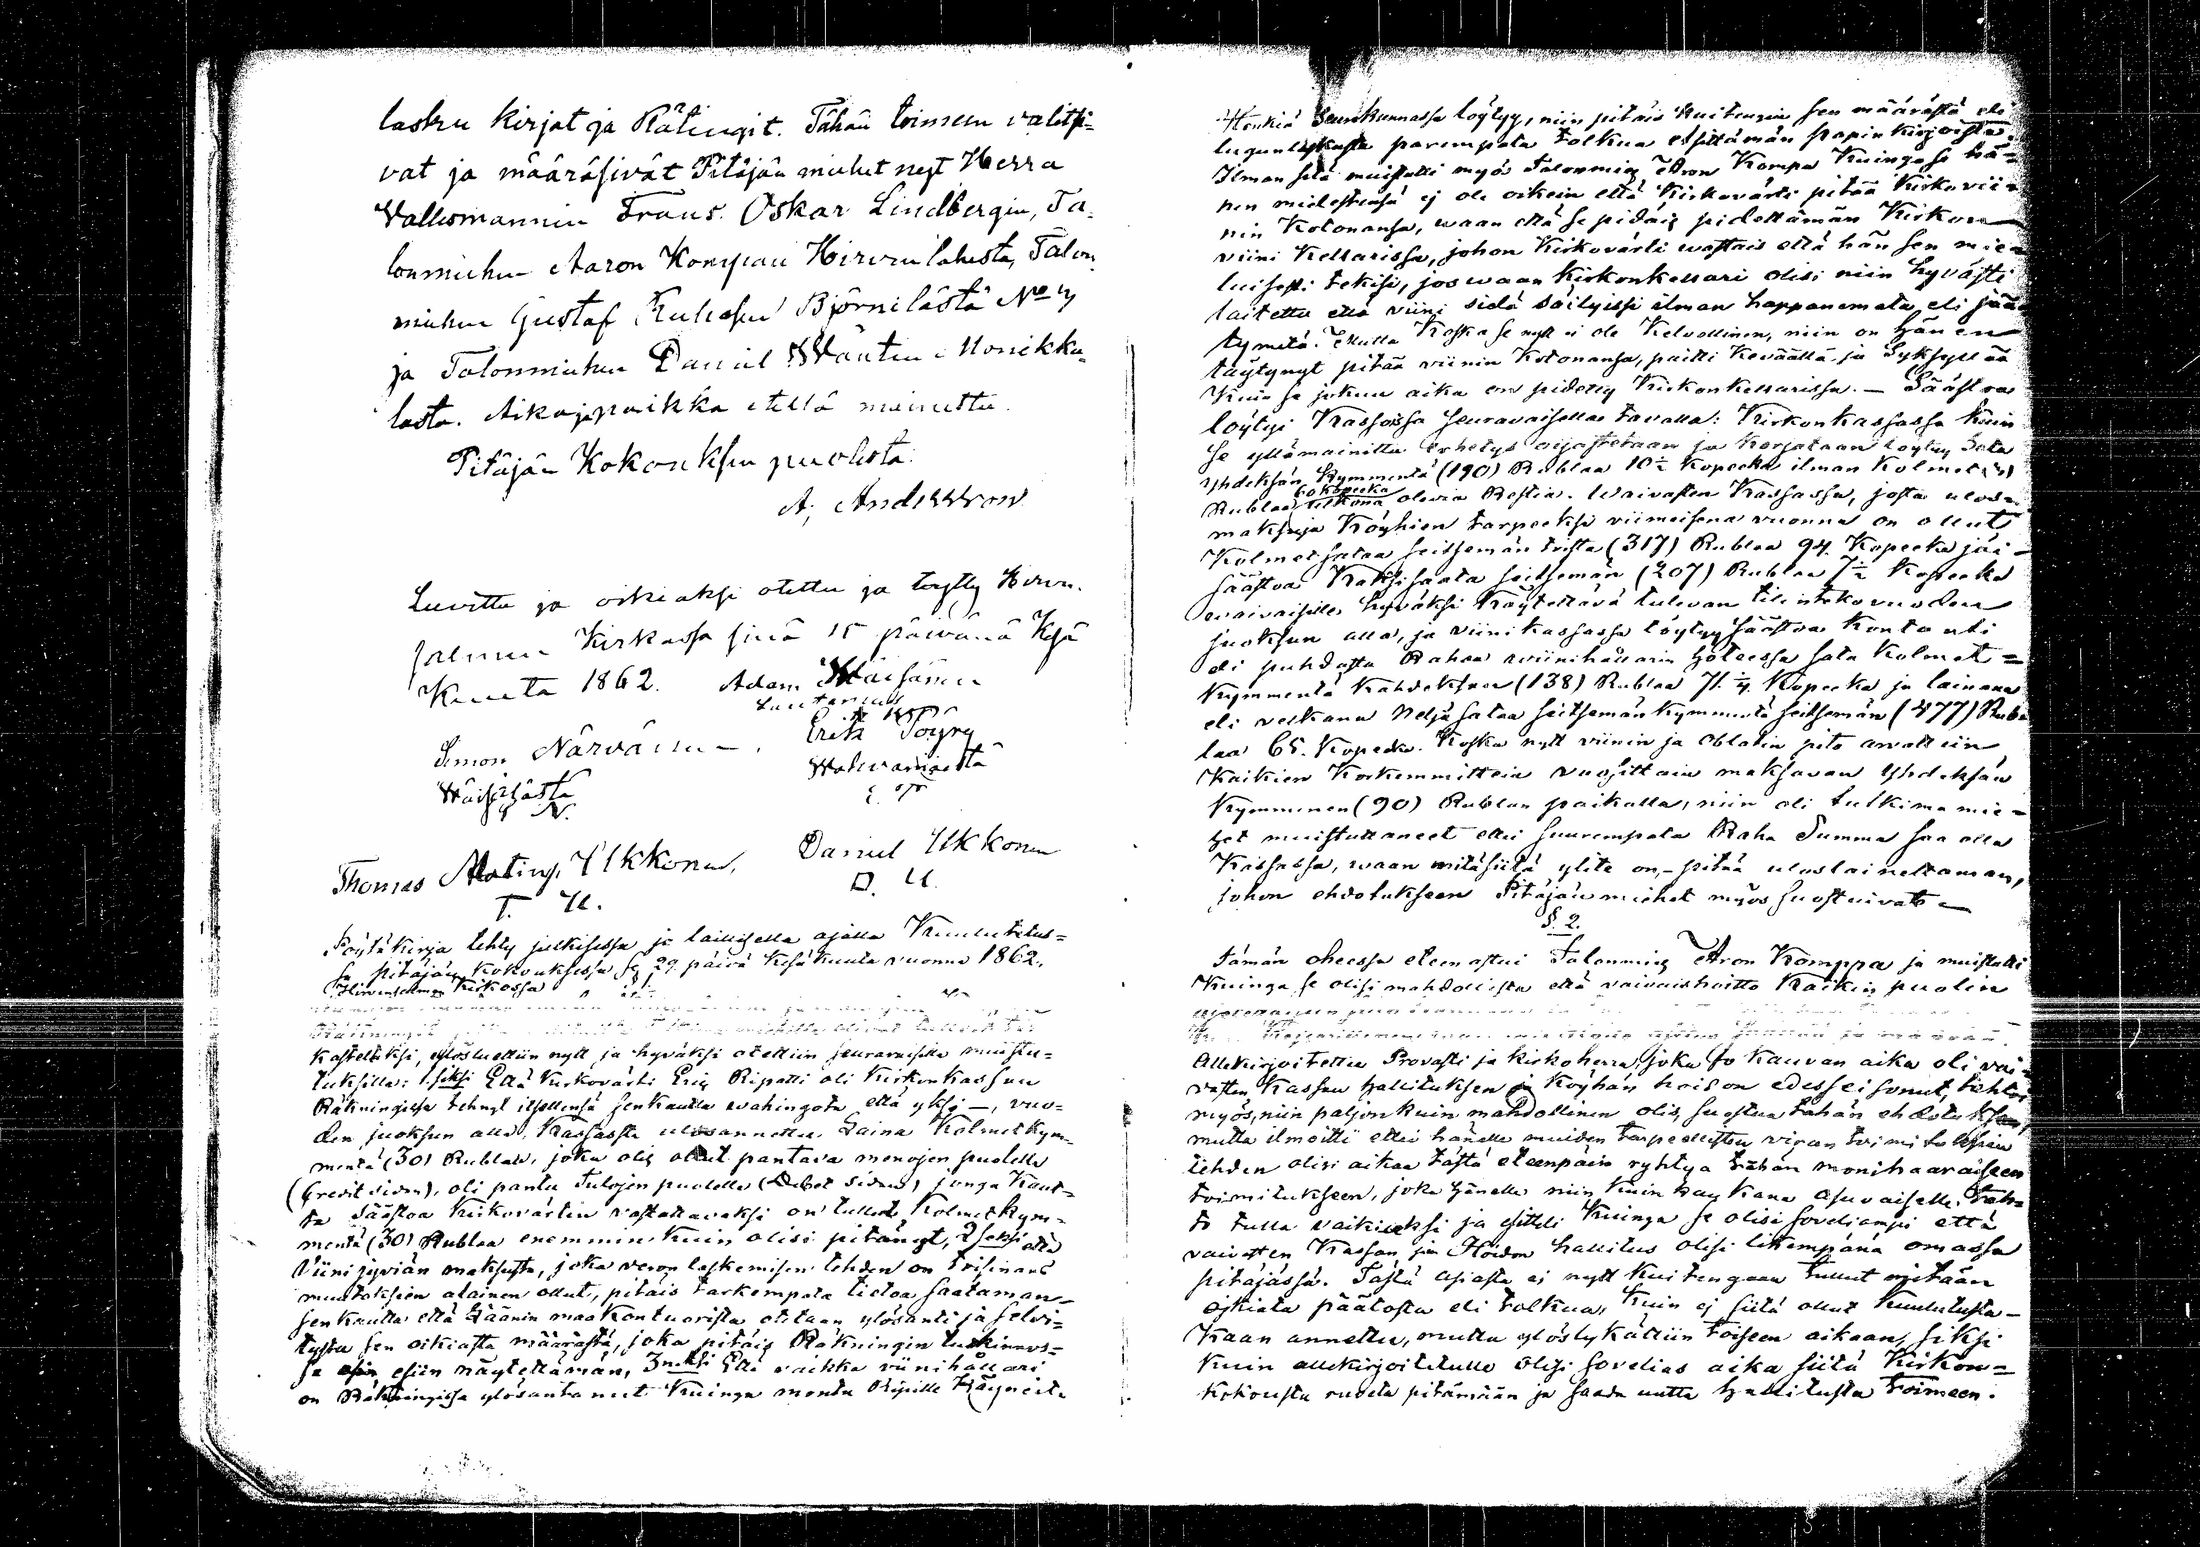 lasku kirjat ja Räkingit. Tähän toimeen valitsi-
vat ja määräsivät Pitäjän miehet nyt Herra
Vallesmannin Frans. Oskar Lindbergin, Ta-
lonmiehen Aaron Kompan Hirvenlahesta, Talon
miehen Gustaf Björnilästä No 7
ja Talonmiehen Daniel Wänten Monikka-
lasta. Aika ja paikka etellä mainittu.
Pitäjän Kokouksen puolesta.
A, Andersson
Luvettu ja oikiaksi otettu ja Hirven-
salmen Kirkossa sinä 15 päivänä Kesä
Kuuta 1862. Adam Wäisänen
Lautamies
Simon Närväinen Erik Pöyry
Wahvamäestä
S N. E. P
Thomas Ukkonen, Daniel Ukkonen
T. U. D. U.
Pöytäkirja tehty julkisessa ja laillisella ajalla Kuulutetus-
sa pitäjän Kokouksessa se 29 päivä Kesäkuuta vuonna 1862,
Hirvensalmen Kirkossa
§ 1.
Kasteltuksi, ylösluettiin nytt ja hyväksi otettiin seuravaisilla muistu-
tuksilla: 1 seksi Että Kirkovärti Eriq Ripatti oli Kirkonkassan
Räkningissä tehnyt itsellensä senkautta wahingota että yksi —, vuo-
den juoksun alla, Kassasta ulosannettu Laina Kolmetkym-
mentä (30) Rublaa, joka olis ollut pantava menojen puolelle
(Credit siden), oli pantu Tulojen puolelle (Debet siden) jonga Kaut-
ta Säästöä Kirkovärtin vastattavaksi on tullut Kolmetkym-
mentä (30) Rublaa enemmin Kuin olisi pitänyt, 2 seksi että
Viini jyväin maksusta, joka veron laskemisen tehden on trisinans
muutoksien alainen ollut, pitäis tarkempata tietoa saataman
senkautta että Läänin maa Kontuorista otetaan ylösanti ja selvi-
tystä sen oikiasta määrästä, joka pitäis Räkningin tutkinnos-
sa esiin näytettämän, 3 neksi Että vaikka viinihållari
on Räkningissä ylösantanut Kuinga monta Ripille Käyneitä
Henkiä Seurakunnassa löytyy, niin pitäis Kuitengin sen määrästä eli
parempata tolkua esittämän papin kirjoista.
Ilman sitä muistutti myös Talonmies Aron Kompa Kuinga se hä-
nen mielestensä ej ole oikein että Kirkovärti pitää Kirkovii-
nin Kotonansa, waan että se pidäis pidettämän Kirkon
viini Kellarissa, johon Kirkovärti wastais että hän sen mie-
luisesti tekisi, jos waan Kirkonkellari olisi niin hyvästi
laitettu että viini siälä säilyissi ilman happanemata eli jää-
tymätä. Mutta Koska se nytt ei ole Kelvollinen, niin on hänen
täytynyt pitää viinin Kotonansa, paitti Keväällä ja Syksyllä
Kuin se jokun aika on pidetty Kirkonkellarissa. — Säästöä
löytyi Kassoissa seuravaisellaa tavalla: Kirkonkassassa Kuin
se yllämainittu erhetys ojastetaan ja Korjataan löytyy Sata
yhdeksän Kymmentä (190) Rublaa 10½ Kopeeka ilman Kolmet (3)
Rublaa 60 Kopeeka olevia Restia. Waivasten Kassassa, josta ulos-
maksuja Köyhien tarpeeksi viimeisenä vuonna on ollut
Kolmet sataa seitsemän toista (317) Rublaa 94 Kopeeka jäi
säästöä Kaksisaata seitsemän (207) Rublaa 7½ Kopeeka
waivaisille hyväksi Käytettävä tulevan tilinteko vuoden
juoksun alla, ja viinikassassa löytyy säästöä Kontanti
eli puhdasta Rahaa wiinihållarin hoteessa sata Kolmet-
kymmentä Kahdeksan (138) Rublaa 71.¼ Kopeeka ja lainana
eli velkana Neljä sataa seitsemänkymmentä seitsemän (477) Rub-
laa 65. Kopeeka. Koska nytt viinin ja Oblatin pito arvattiin
Kaikien Korkemmittein vuosittain maksavan yhdeksän
Kymmenen (90) Rublan paikalla, niin oli tutkima mie-
het muistuttaneet ettei suurempata Raha Summa saa olla
Kassassa, waan mitä siitä ylite on, pitää uloslainattaman,
johon ehdotukseen Pitäjän miehet myös suostuivat.
§. 2.
Tämän oheessa eteen astui Talonmies Aron Komppa ja muistutti
Kuinga se olisi mahdollista että vaivaishoitto Kaikin puolin
Allekirjoitettu Provasti ja kirkoherra, joka jo kauvan aika oli vai-
vasten Kassan hallituksen ja Köyhän hoidon edessei sonut, tahtoi
myös, niin paljon kuin mahdollinen olis, suostua tähän ehdotuksen,
mutta ilmoitti ettei hänellä muiden tarpeellisten viran toimituksien
tehden olisi aikaa tästä eteenpäin ryhtyä tähän monihaaraiseen
toimitukseen, joka hänelle niin Kuin kaukana asuvaiselle tah-
to tulla vaikiaksi ja esitteli Kuinga se olisi soveliampi että
vaivasten Kassan ja Hoidon hallitus olisi likempänä omassa
pitäjässä. Tästä asiasta ei nytt Kuitengaan tullut mitään
oikiata päätöstä eli tolkua, Kuin ej siitä ollut Kuulutusta-
Kaan annettu, mutta ylöslykättiin toiseen aikaan, siksi
Kuin allekirjoitetulle olisi sovelias aika siitä Kirkon-
Kokousta ruveta pitämään ja saada uutta hallitusta toimeen.